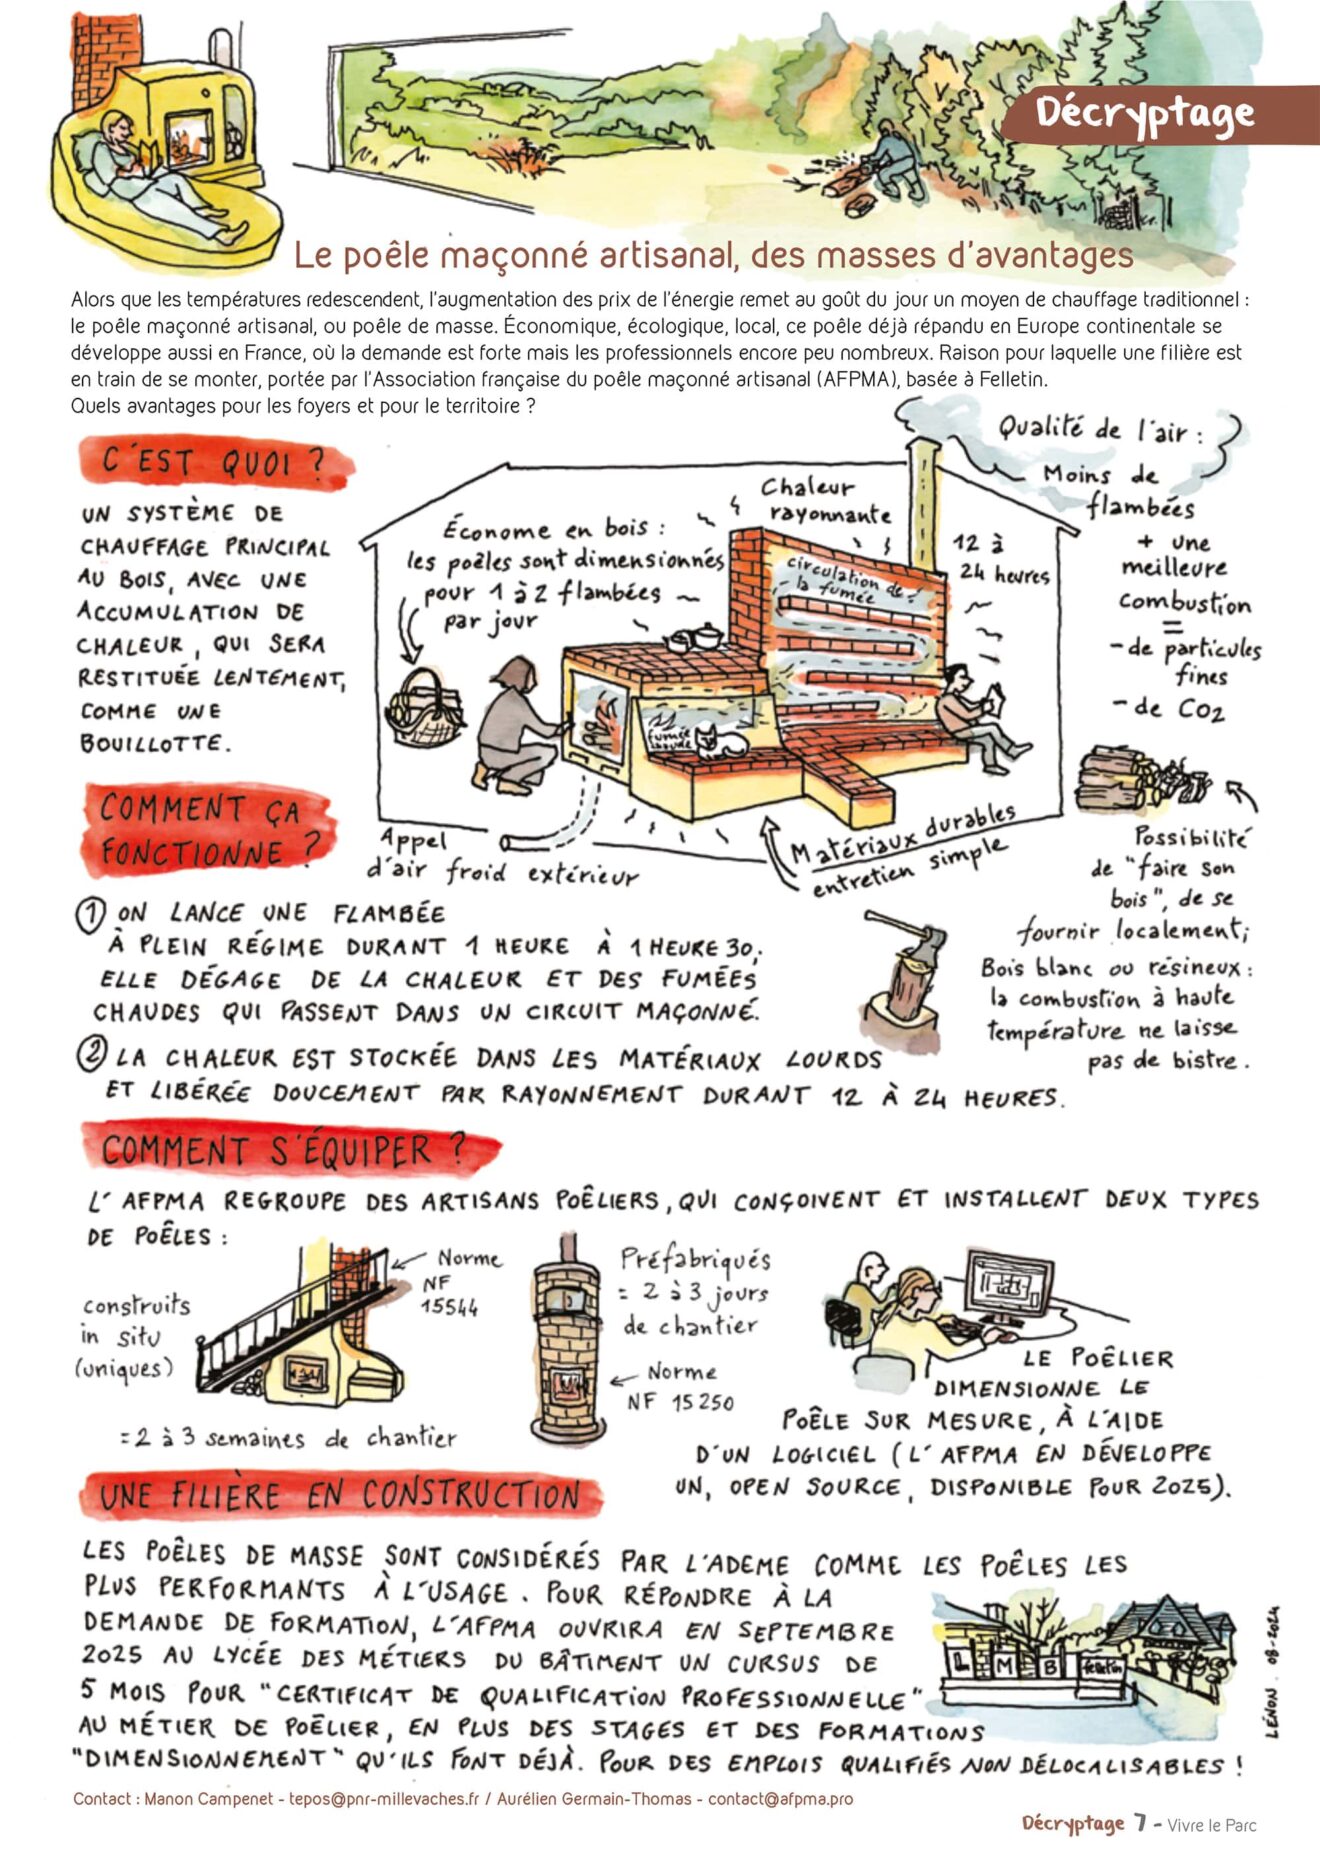 Décryptage
Le poêle maçonné artisanal, des masses d'avantages
Alors que les températures redescendent, l'augmentation des prix de l'énergie remet au goût du jour un moyen de chauffage traditionnel :
le poêle maçonné artisanal, ou poêle de masse. Économique, écologique, local, ce poêle déjà répandu en Europe continentale se
développe aussi en France, où la demande est forte mais les professionnels encore peu nombreux. Raison pour laquelle une filière est
en train de se monter, portée par l'Association française du poêle maçonné artisanal (AFPMA), basée à Felletin.
Quels avantages pour les foyers et pour le territoire ?
C'EST QUOI ?
UN SYSTÈME DE
CHAUFFAGE PRINCIPAL
AU BOIS, AVEC UNE
ACCUMULATION DE
CHALEUR, QUI SERA
RESTITUÉE LENTEMENT,
COMME UNE
BOUILLOTTE.
Économe en bois :
les poêles sont dimensionnés
pour 1 à 2 flambées
par jour
Chaleur
rayonnante
12 à
24 heures
circulation de
la fumée
fumée
chaude
Appel
d'air froid extérieur
Matériaux durables
entretien simple
Qualité de l'air :
Moins de
flambées
+ une
meilleure
combustion
=
- de particules
fines
- de CO2
Possibilité
de "faire son
bois", de se
fournir localement;
Bois blanc ou résineux :
la combustion à haute
température ne laisse
pas de bistre.
COMMENT ÇA
FONCTIONNE ?
1 ON LANCE UNE FLAMBÉE
À PLEIN RÉGIME DURANT 1 HEURE À 1 HEURE 30;
ELLE DÉGAGE DE LA CHALEUR ET DES FUMÉES
CHAUDES QUI PASSENT DANS UN CIRCUIT MAÇONNÉ.
2 LA CHALEUR EST STOCKÉE DANS LES MATÉRIAUX LOURDS
ET LIBÉRÉE DOUCEMENT PAR RAYONNEMENT DURANT 12 À 24 HEURES.
COMMENT S'ÉQUIPER ?
L'AFPMA REGROUPE DES ARTISANS POÊLIERS, QUI CONÇOIVENT ET INSTALLENT DEUX TYPES
DE POÊLES :
construits
in situ
(uniques)
Norme
NF
15544
= 2 à 3 semaines de chantier
Préfabriqués
= 2 à 3 jours
de chantier
Norme
NF 15250
LE POÊLIER
DIMENSIONNE LE
POÊLE SUR MESURE, À L'AIDE
D'UN LOGICIEL (L'AFPMA EN DÉVELOPPE
UN, OPEN SOURCE, DISPONIBLE POUR 2025).
UNE FILIÈRE EN CONSTRUCTION
LES POÊLES DE MASSE SONT CONSIDÉRÉS PAR L'ADEME COMME LES POÊLES LES
PLUS PERFORMANTS À L'USAGE. POUR RÉPONDRE À LA
DEMANDE DE FORMATION, L'AFPMA OUVRIRA EN SEPTEMBRE
2025 AU LYCÉE DES MÉTIERS DU BÂTIMENT UN CURSUS DE
5 MOIS POUR "CERTIFICAT DE QUALIFICATION PROFESSIONNELLE"
AU MÉTIER DE POÊLIER, EN PLUS DES STAGES ET DES FORMATIONS
"DIMENSIONNEMENT" QU'ILS FONT DÉJÀ. POUR DES EMPLOIS QUALIFIÉS NON DÉLOCALISABLES !
L M B felletin
LÉNON. 08-2024
Contact : Manon Campenet - tepos@pnr-millevaches.fr / Aurélien Germain-Thomas - contact@afpma.pro
Décryptage 7 - Vivre le Parc